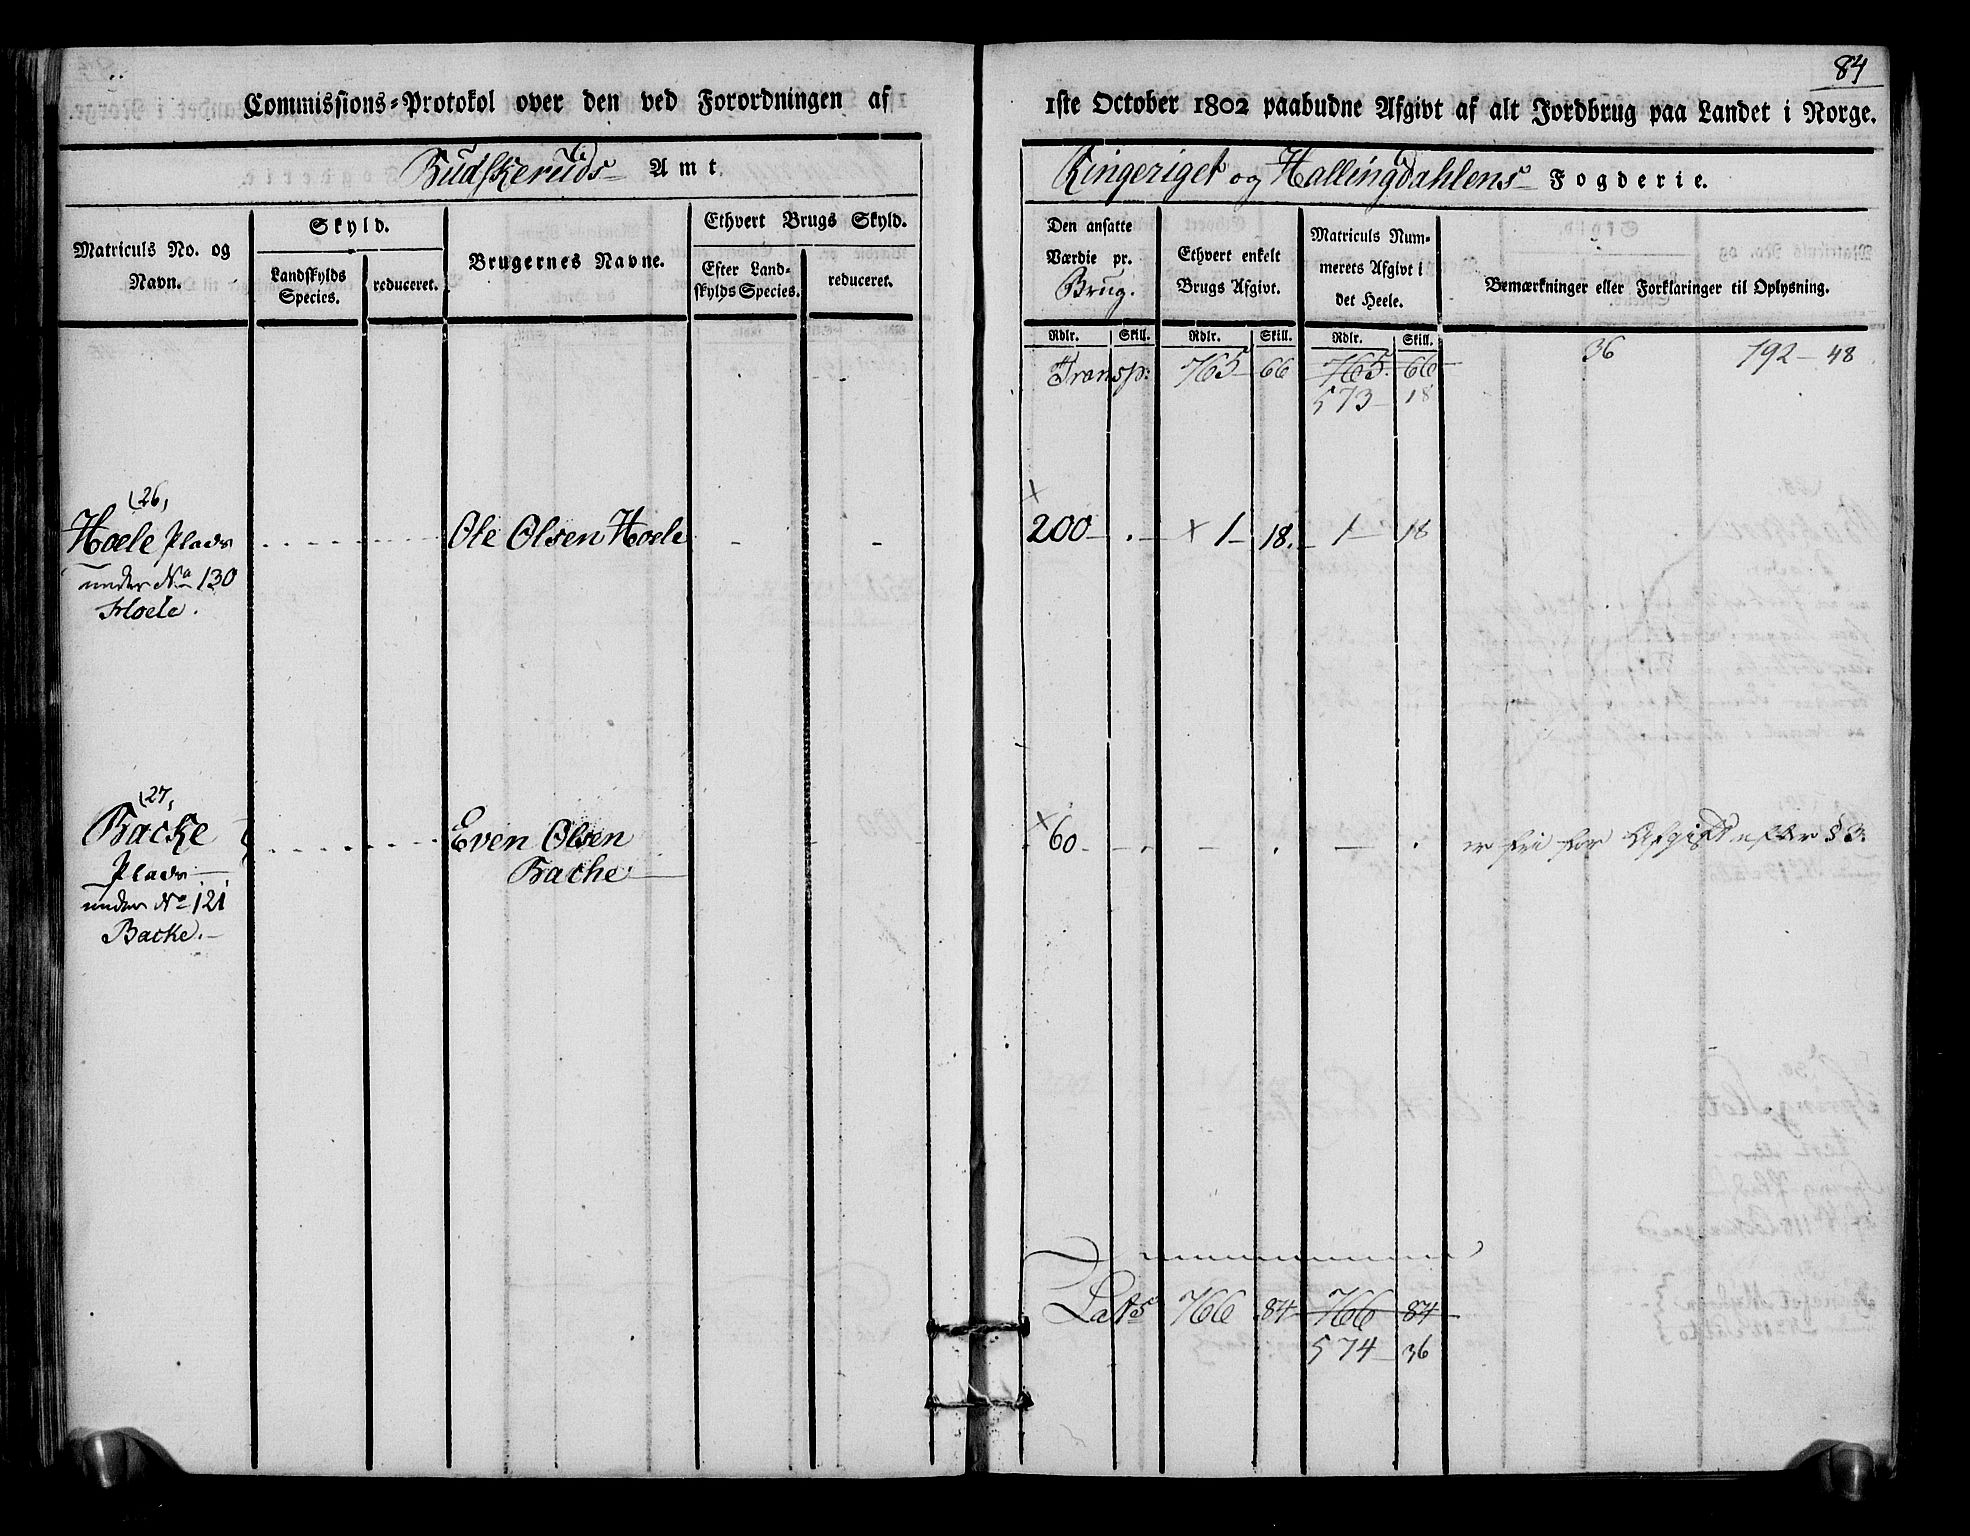 84
Commissions-Protokol over den ved Forordningen af 1ste October 1802 paabudne Afgivt af alt Jordbrug paa Landet i Norge.
Budskeruds Amt. Ringeriget og Hallingdahlens Fogderie.
Matriculs No. og Navn.
Skyld.
Landskylds Species.
reduceret.
Brugernes Navne.
Ethvert Brugs Skyld.
Efter Landskylds Species.
reduceret.
Den ansatte Værdie pr. Brug.
Ethvert enkelt Brugs Afgivt.
Matriculs Nummerets Afgivt i det Heele.
Bemærkninger eller Forklaringer til Oplysning.
Rdlr. Skill. Rdlr. Skill. Rdlr. Skill.
36 192 - 48
Transp: 765 66 765 66
573 18
(26)
Hoele Plads Ole Olsen Hoele 200 - . - x 1 - 18. 1 - 18
under No 130
Hoele.
(27)
Backe Even Olsen x 60 - er fri for Afgivt efter § 3.
Plads Bache
under No 121
Backe.
Lats 766 84 766 84
574 36